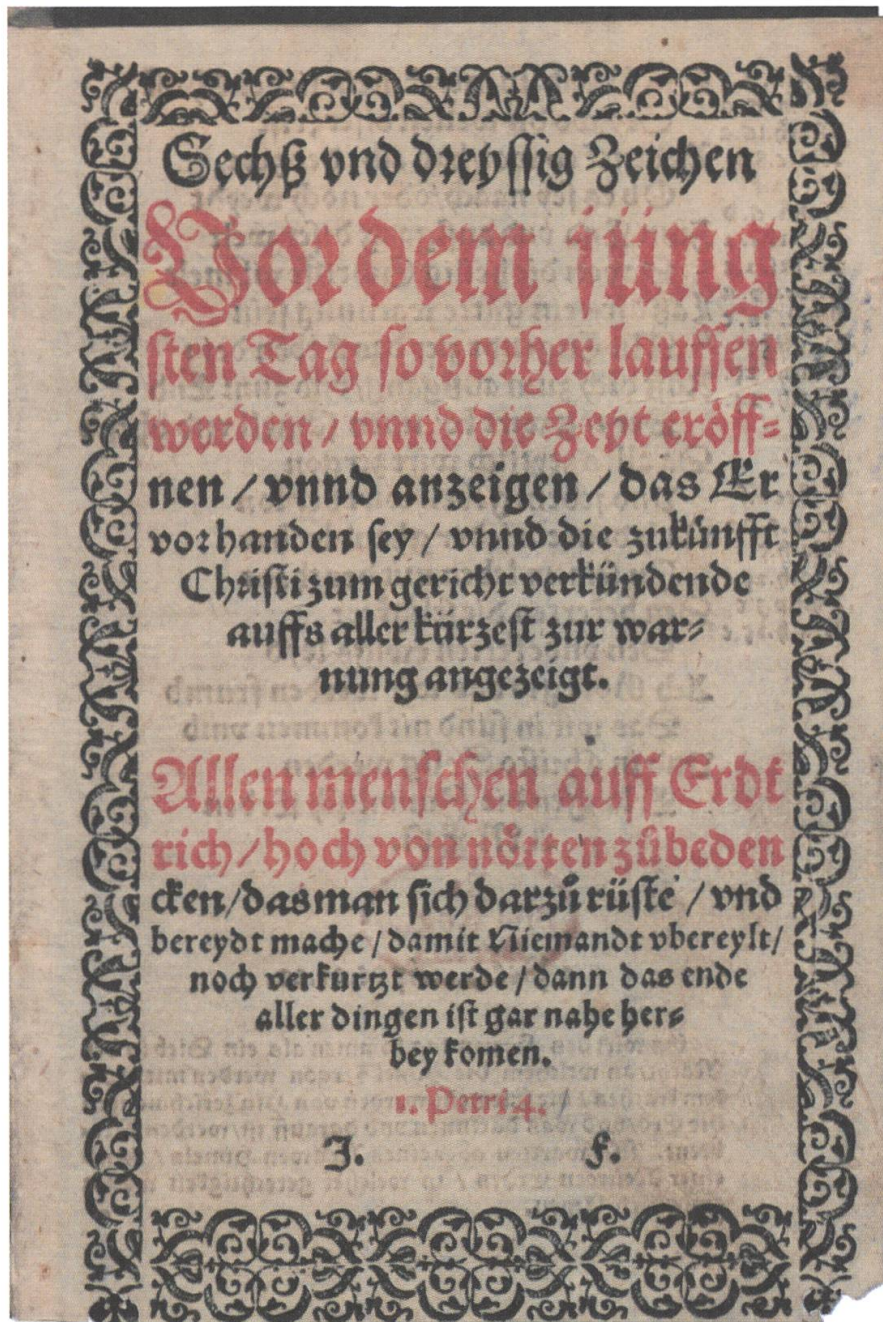 Sechß vnd dreyssig Zeichen
Vor dem jüng
sten Tag so vorher lauffen
werden / vnnd die Zeyt eröff=
nen / vnnd anzeigen / das Er
vorhanden sey / vnnd die zukünfft
Christi zum gericht verkündende
auffs aller kürzest zur war=
nung angezeigt.
Allen menschen auff Erdt
rich / hoch von nötten zůbeden
cken / das man sich darzů rüste / vnd
bereydt mache / damit Niemandt vbereylt /
noch verkurtzt werde / dann das ende
aller dingen ist gar nahe her=
bey komen.
1. Petri 4.
J. F.